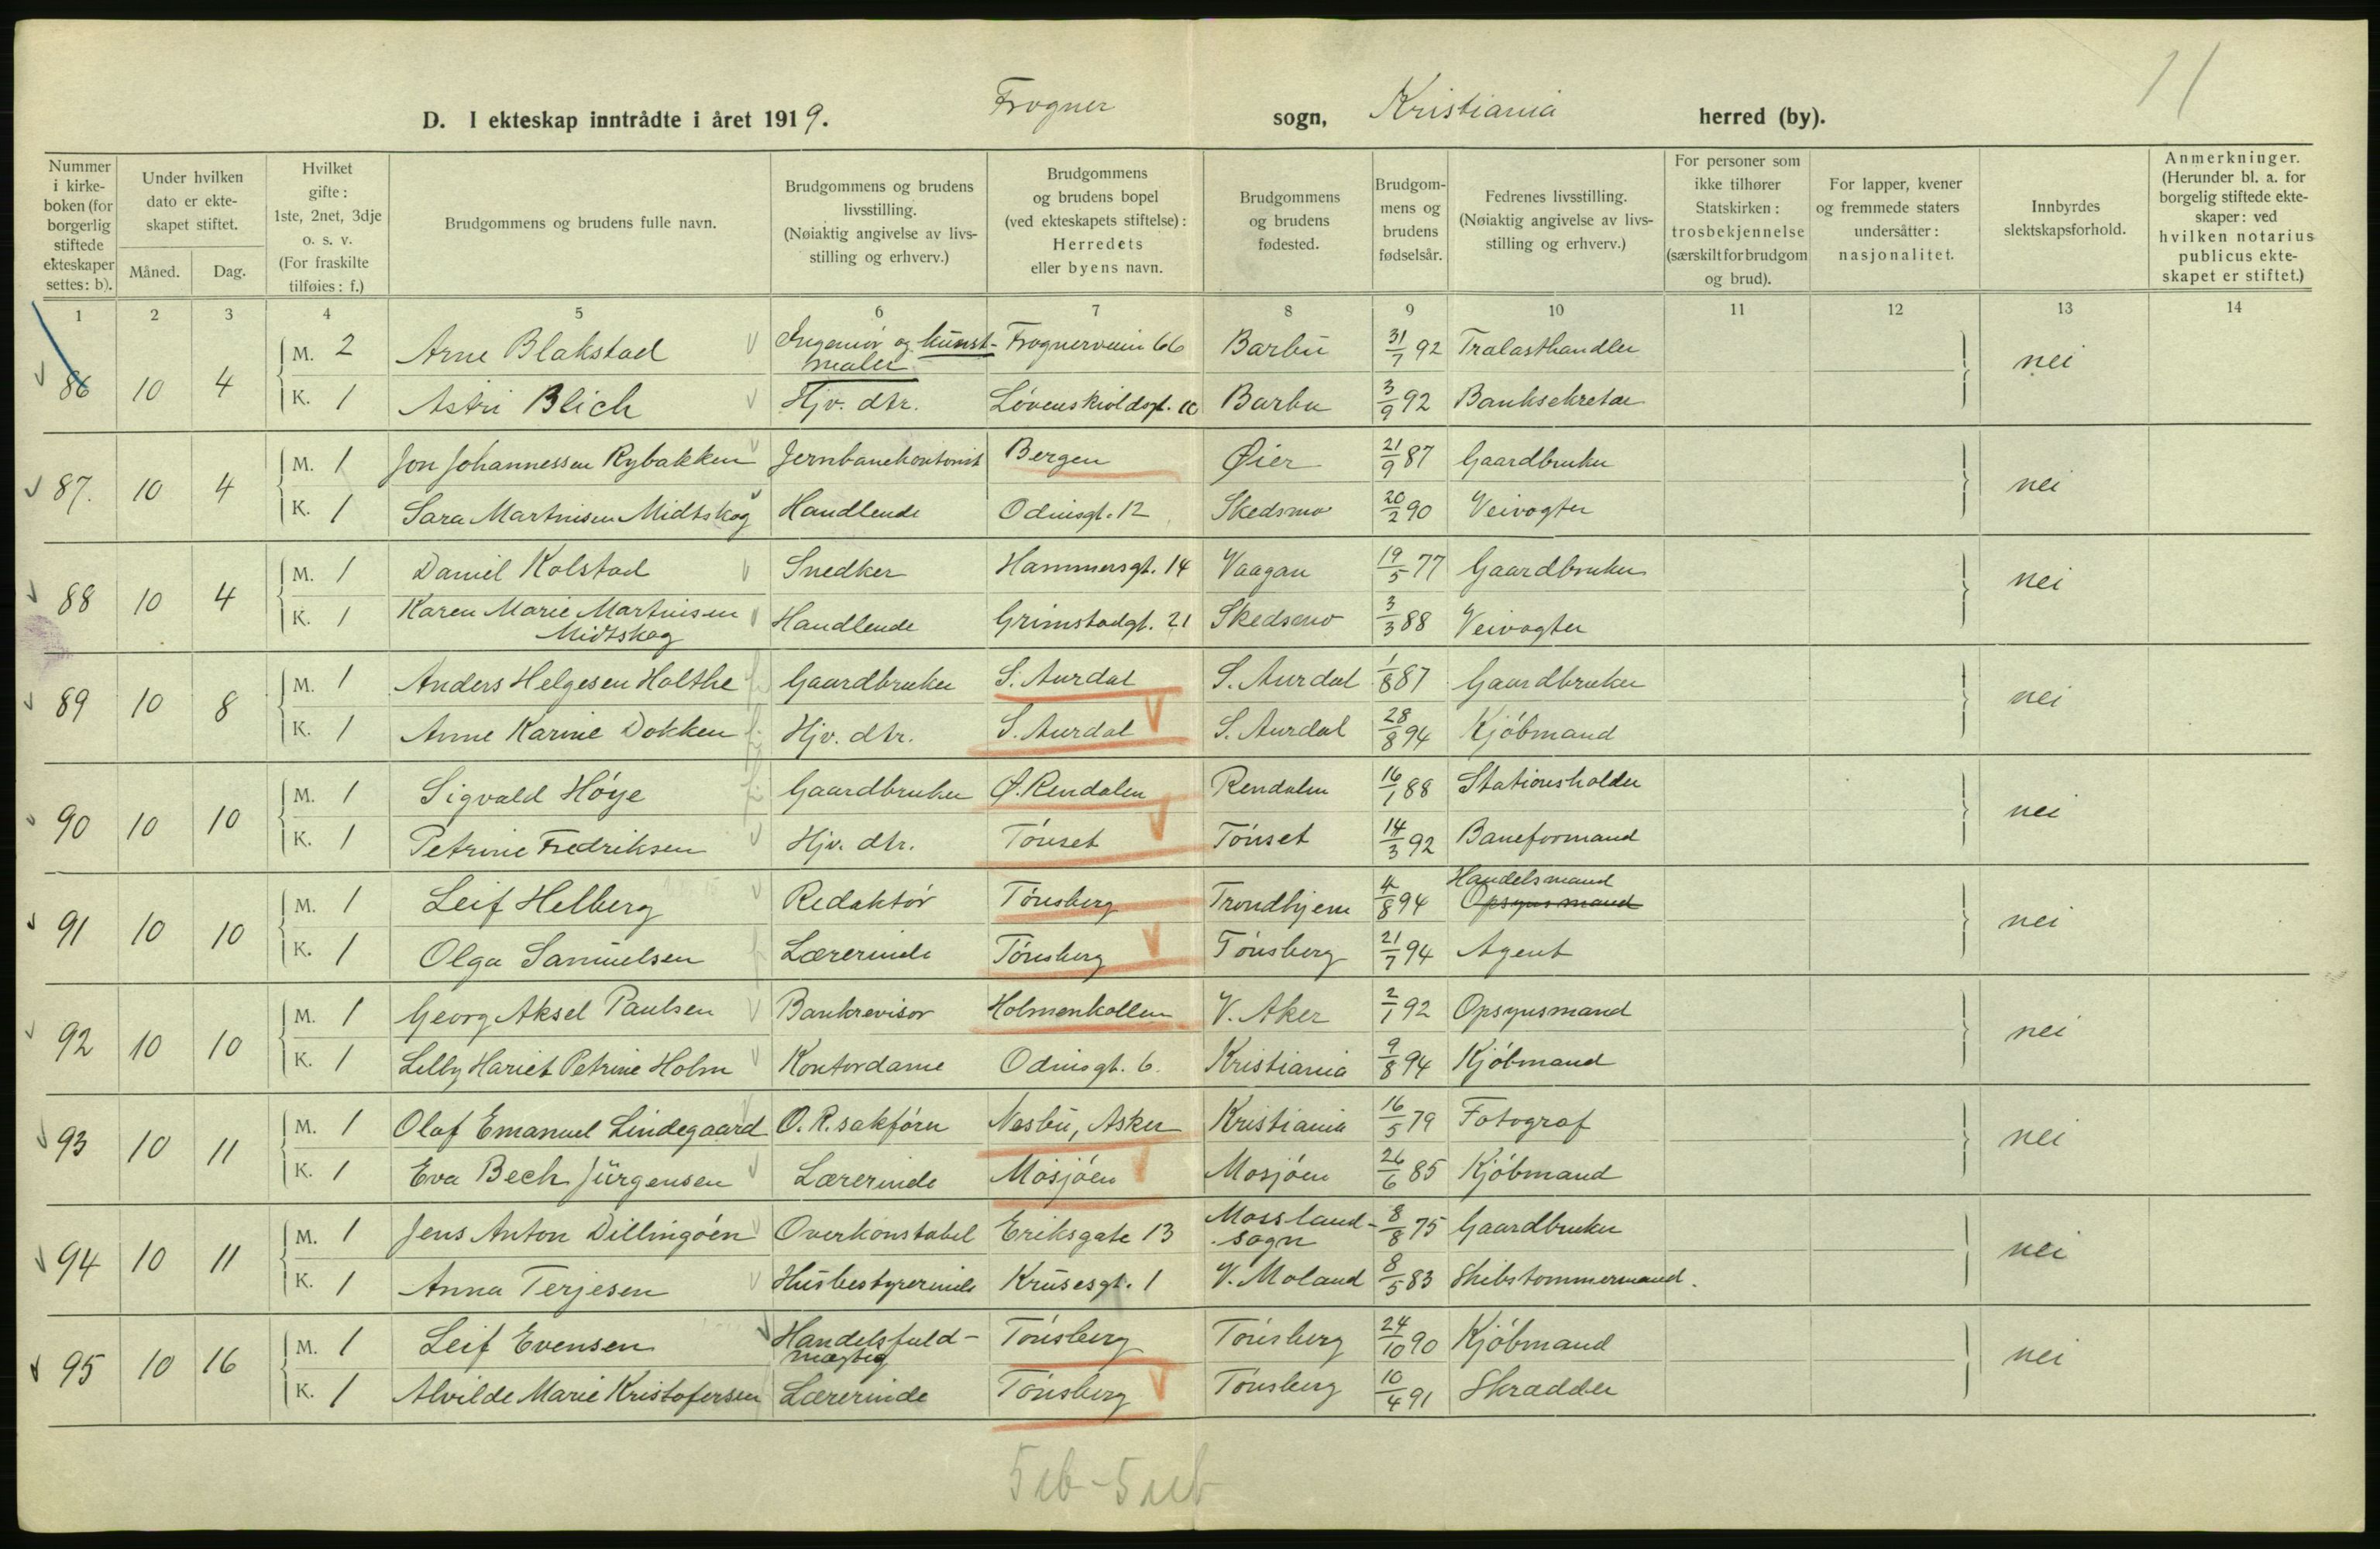 11
D. I ekteskap inntrådte i året 1919. Frogner sogn, Kristiania herred (by).
Nummer i kirkeboken (for borgerlig stiftede ekteskaper settes: b). | Under hvilken dato er ekteskapet stiftet. Måned. Dag. | Hvilket gifte: 1ste, 2net, 3dje o. s. v. (For fraskilte tilføies: f.) | Brudgommens og brudens fulle navn. | Brudgommens og brudens livsstilling. (Nøiaktig angivelse av livsstilling og erhverv.) | Brudgommens og brudens bopel (ved ekteskapets stiftelse): Herredets eller byens navn. | Brudgommens og brudens fødested. | Brudgommens og brudens fødselsår. | Fedrenes livsstilling. (Nøiaktig angivelse av livsstilling og erhverv.) | For personer som ikke tilhører Statskirken: trosbekjennelse (særskilt for brudgom og brud). | For lapper, kvener og fremmede staters undersåtter: nasjonalitet. | Innbyrdes slektskapsforhold. | Anmerkninger. (Herunder bl. a. for borgelig stiftede ekteskaper: ved hvilken notarius publicus ekteskapet er stiftet.)
1 2 3 4 5 6 7 8 9 10 11 12 13 14
86 10 4 M. 2 Arne Blakstad Ingeniør og kunstmaler Frognerveien 66 Barbu 31/7 92 Trælasthandler nei
K. 1 Astri Blich Hjv. dtr. Løvenskioldsgt. 10 Barbu 3/9 92 Banksekretær
87. 10 4 M. 1 Jon Johannessen Rybakken Jernbanekontorist Bergen Øier 21/9 87 Gaardbruker nei
K. 1 Sara Martinisen Midtskog Handlende Odinsgt. 12 Skedsmo 20/2 90 Veivogter
88 10 4 M. 1 Daniel Kolstad Snedker Hammersgt. 14 Vaagan 19/5 77 Gaardbruker nei
K. 1 Karen Marie Martinisen Midtskog Handlende Grimstadgt. 21 Skedsmo 3/3 88 Veivogter
89 10 8 M. 1 Anders Helgesen Holthe Gaardbruker S. Aurdal S. Aurdal 1/8 87 Gaardbruker nei
K. 1 Anne Karine Dokken Hjv. dtr. S. Aurdal S. Aurdal 28/8 94 Kjöbmand
90 10 10 M. 1 Sigvald Höye Gaardbruker Ø. Rendalen Rendalen 16/1 88 Stationsholder nei
K. 1 Petrine Fredriksen Hjv. dtr. Tönset Tönset 14/3 92 Baneformand
91 10 10 M. 1 Leif Helberg Redaktör Tönsberg Trondhjem 4/8 94 Handelsmand Opsynsmand nei
K. 1 Olga Samuelsen Lærerinde Tönsberg Tönsberg 21/7 94 Agent
92 10 10 M. 1 Georg Aksel Paulsen Bankrevisor Holmenkollen V. Aker 2/1 92 Opsynsmand nei
K. 1 Lilly Hariet Petrine Holm Kontordame Odinsgt. 6. Kristiania 9/8 94 Kjöbmand
93 10 11 M. 1 Olaf Emanuel Lindegaard O. R. sakförer Nesbu, Asker Kristiania 16/5 79 Fotograf nei
K. 1 Eva Bech Jürgensen Lærerinde Mosjöen Mosjöen 26/6 85 Kjöbmand
94 10 11 M. 1 Jens Anton Dillingöen Overkonstabel Eriksgate 13 Moss landsogn 8/8 75 Gaardbruker nei
K. 1 Anna Terjesen Husbestyrerinde Krusesgt. 1 V. Moland 8/5 83 Skibstømmermand.
95 10 16 M. 1 Leif Evensen Handelsfuldmægtig Tönsberg Tönsberg 24/10 90 Kjöbmand nei
K. 1 Alvilde Marie Kristofersen Lærerinde Tönsberg Tönsberg 10/4 91 Skrædder